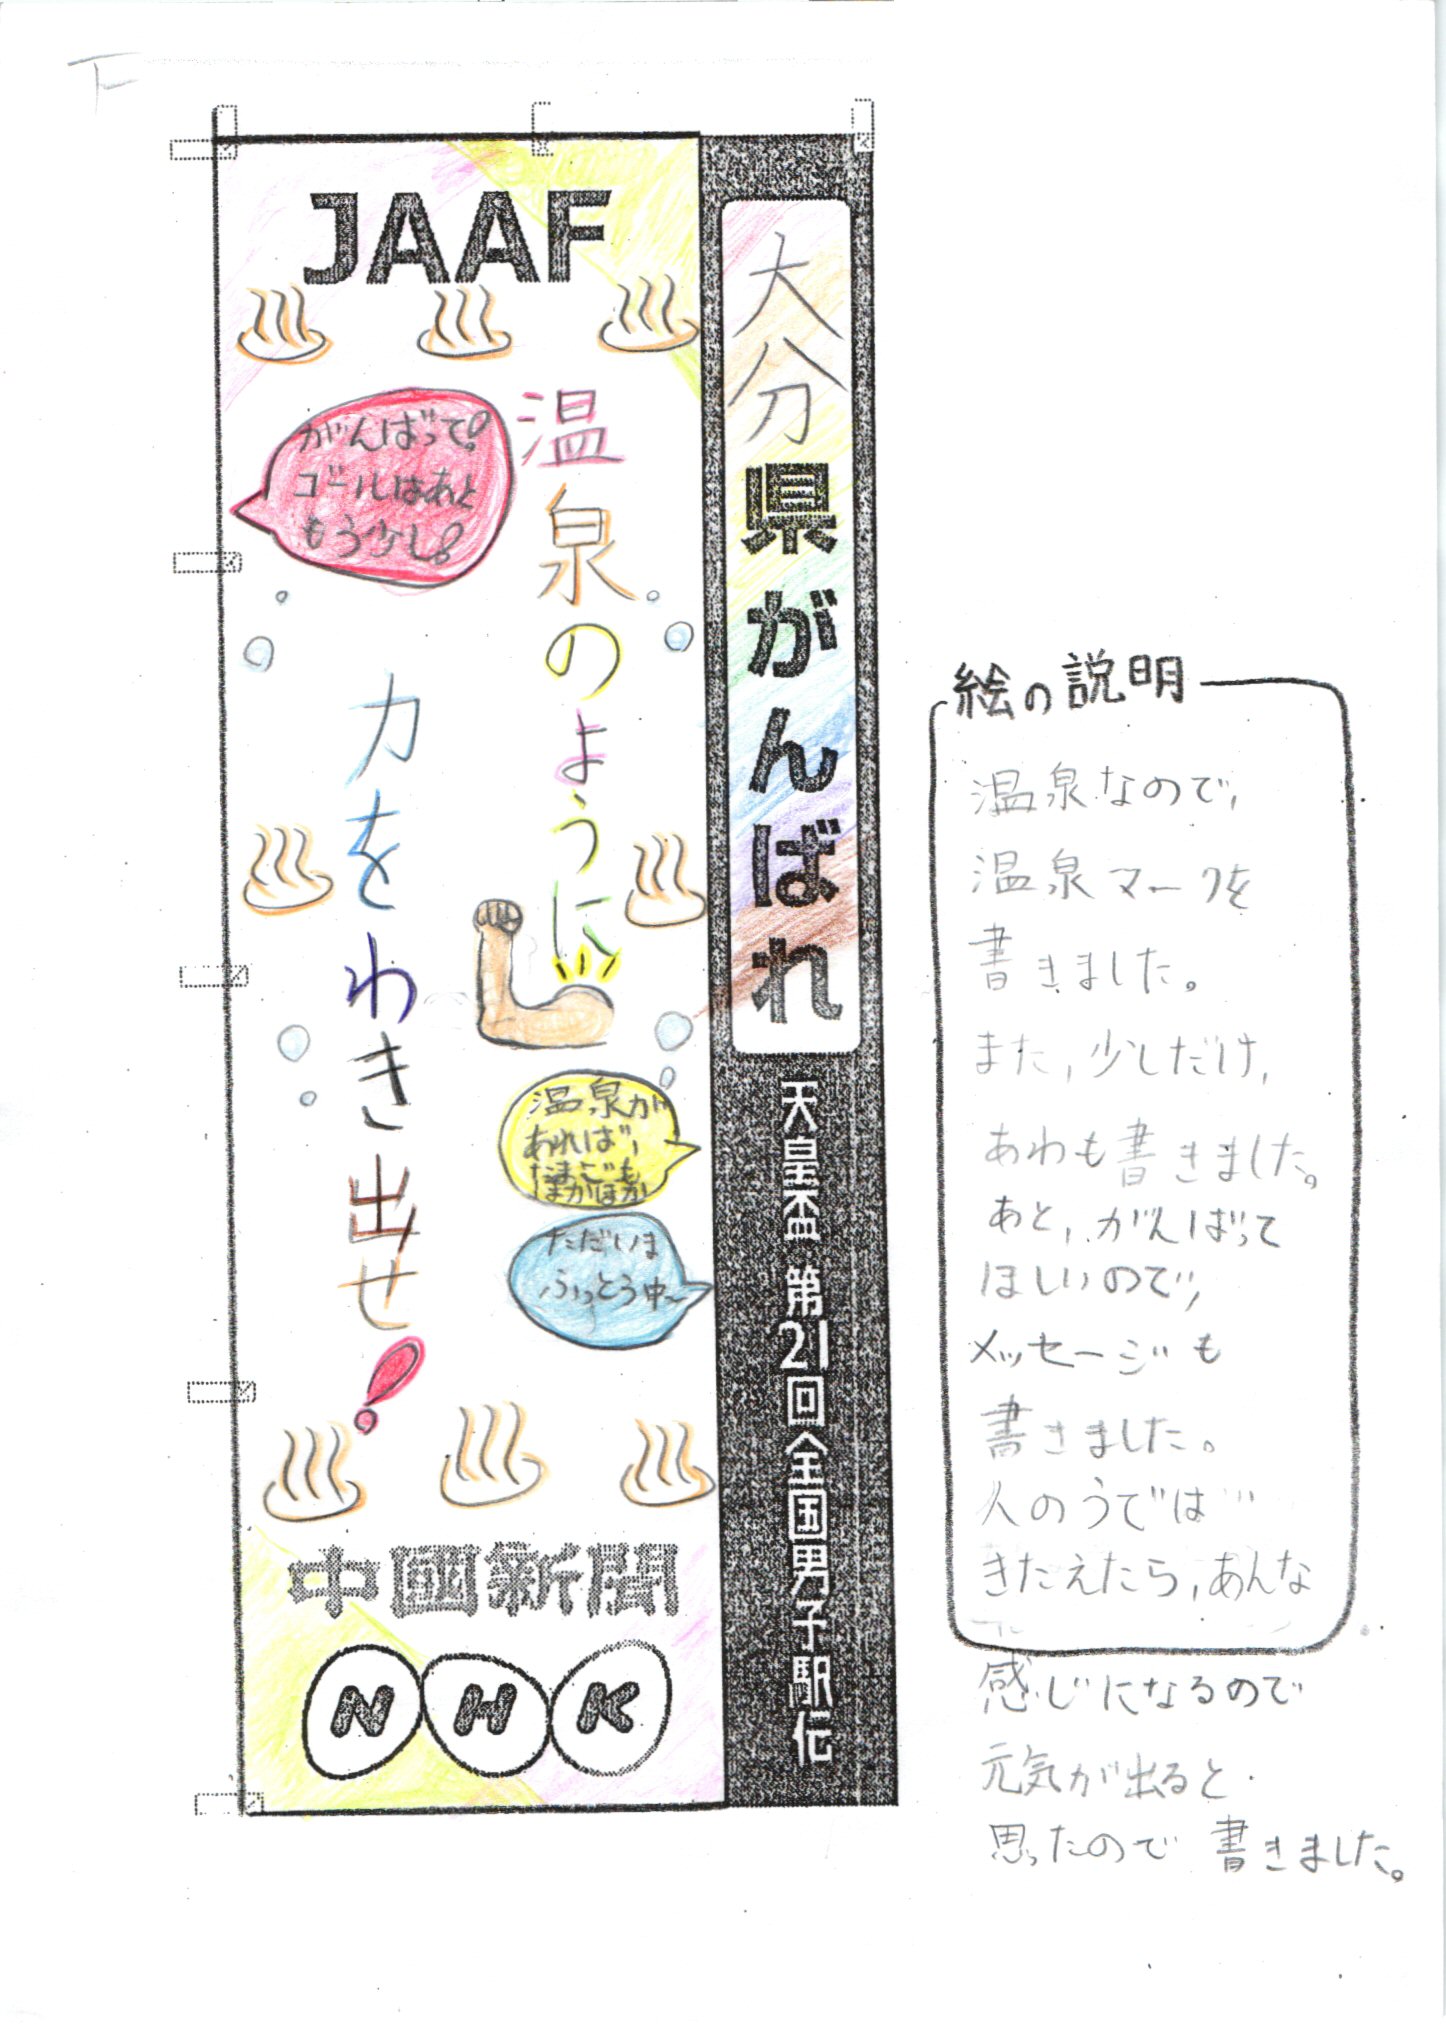 下
JAAF
大分県がんばれ
天皇盃 第21回全国男子駅伝
温泉のように
力をわき出せ!
がんばって!
ゴールはあと
もう少し!
温泉が
あれば、
たまごも
ほかほか
ただいま
ふっとう中~
中國新聞
NHK
絵の説明
温泉なので、
温泉マークを
書きました。
また、少しだけ、
あわも書きました。
あと、がんばって
ほしいので、
メッセージも
書きました。
人のうでは
きたえたら、あんな
感じになるので
元気が出ると
思ったので書きました。